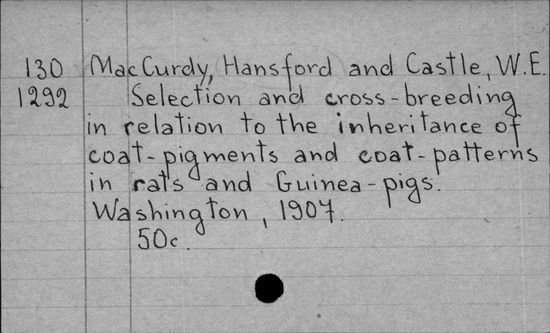 130 MacCurdy, Hansford and Castle, W.E.
1292 Selection and cross-breeding
in relation to the inheritance of
coat-pigments and coat-patterns
in rats and Guinea-pigs.
Washington, 1907.
50c.